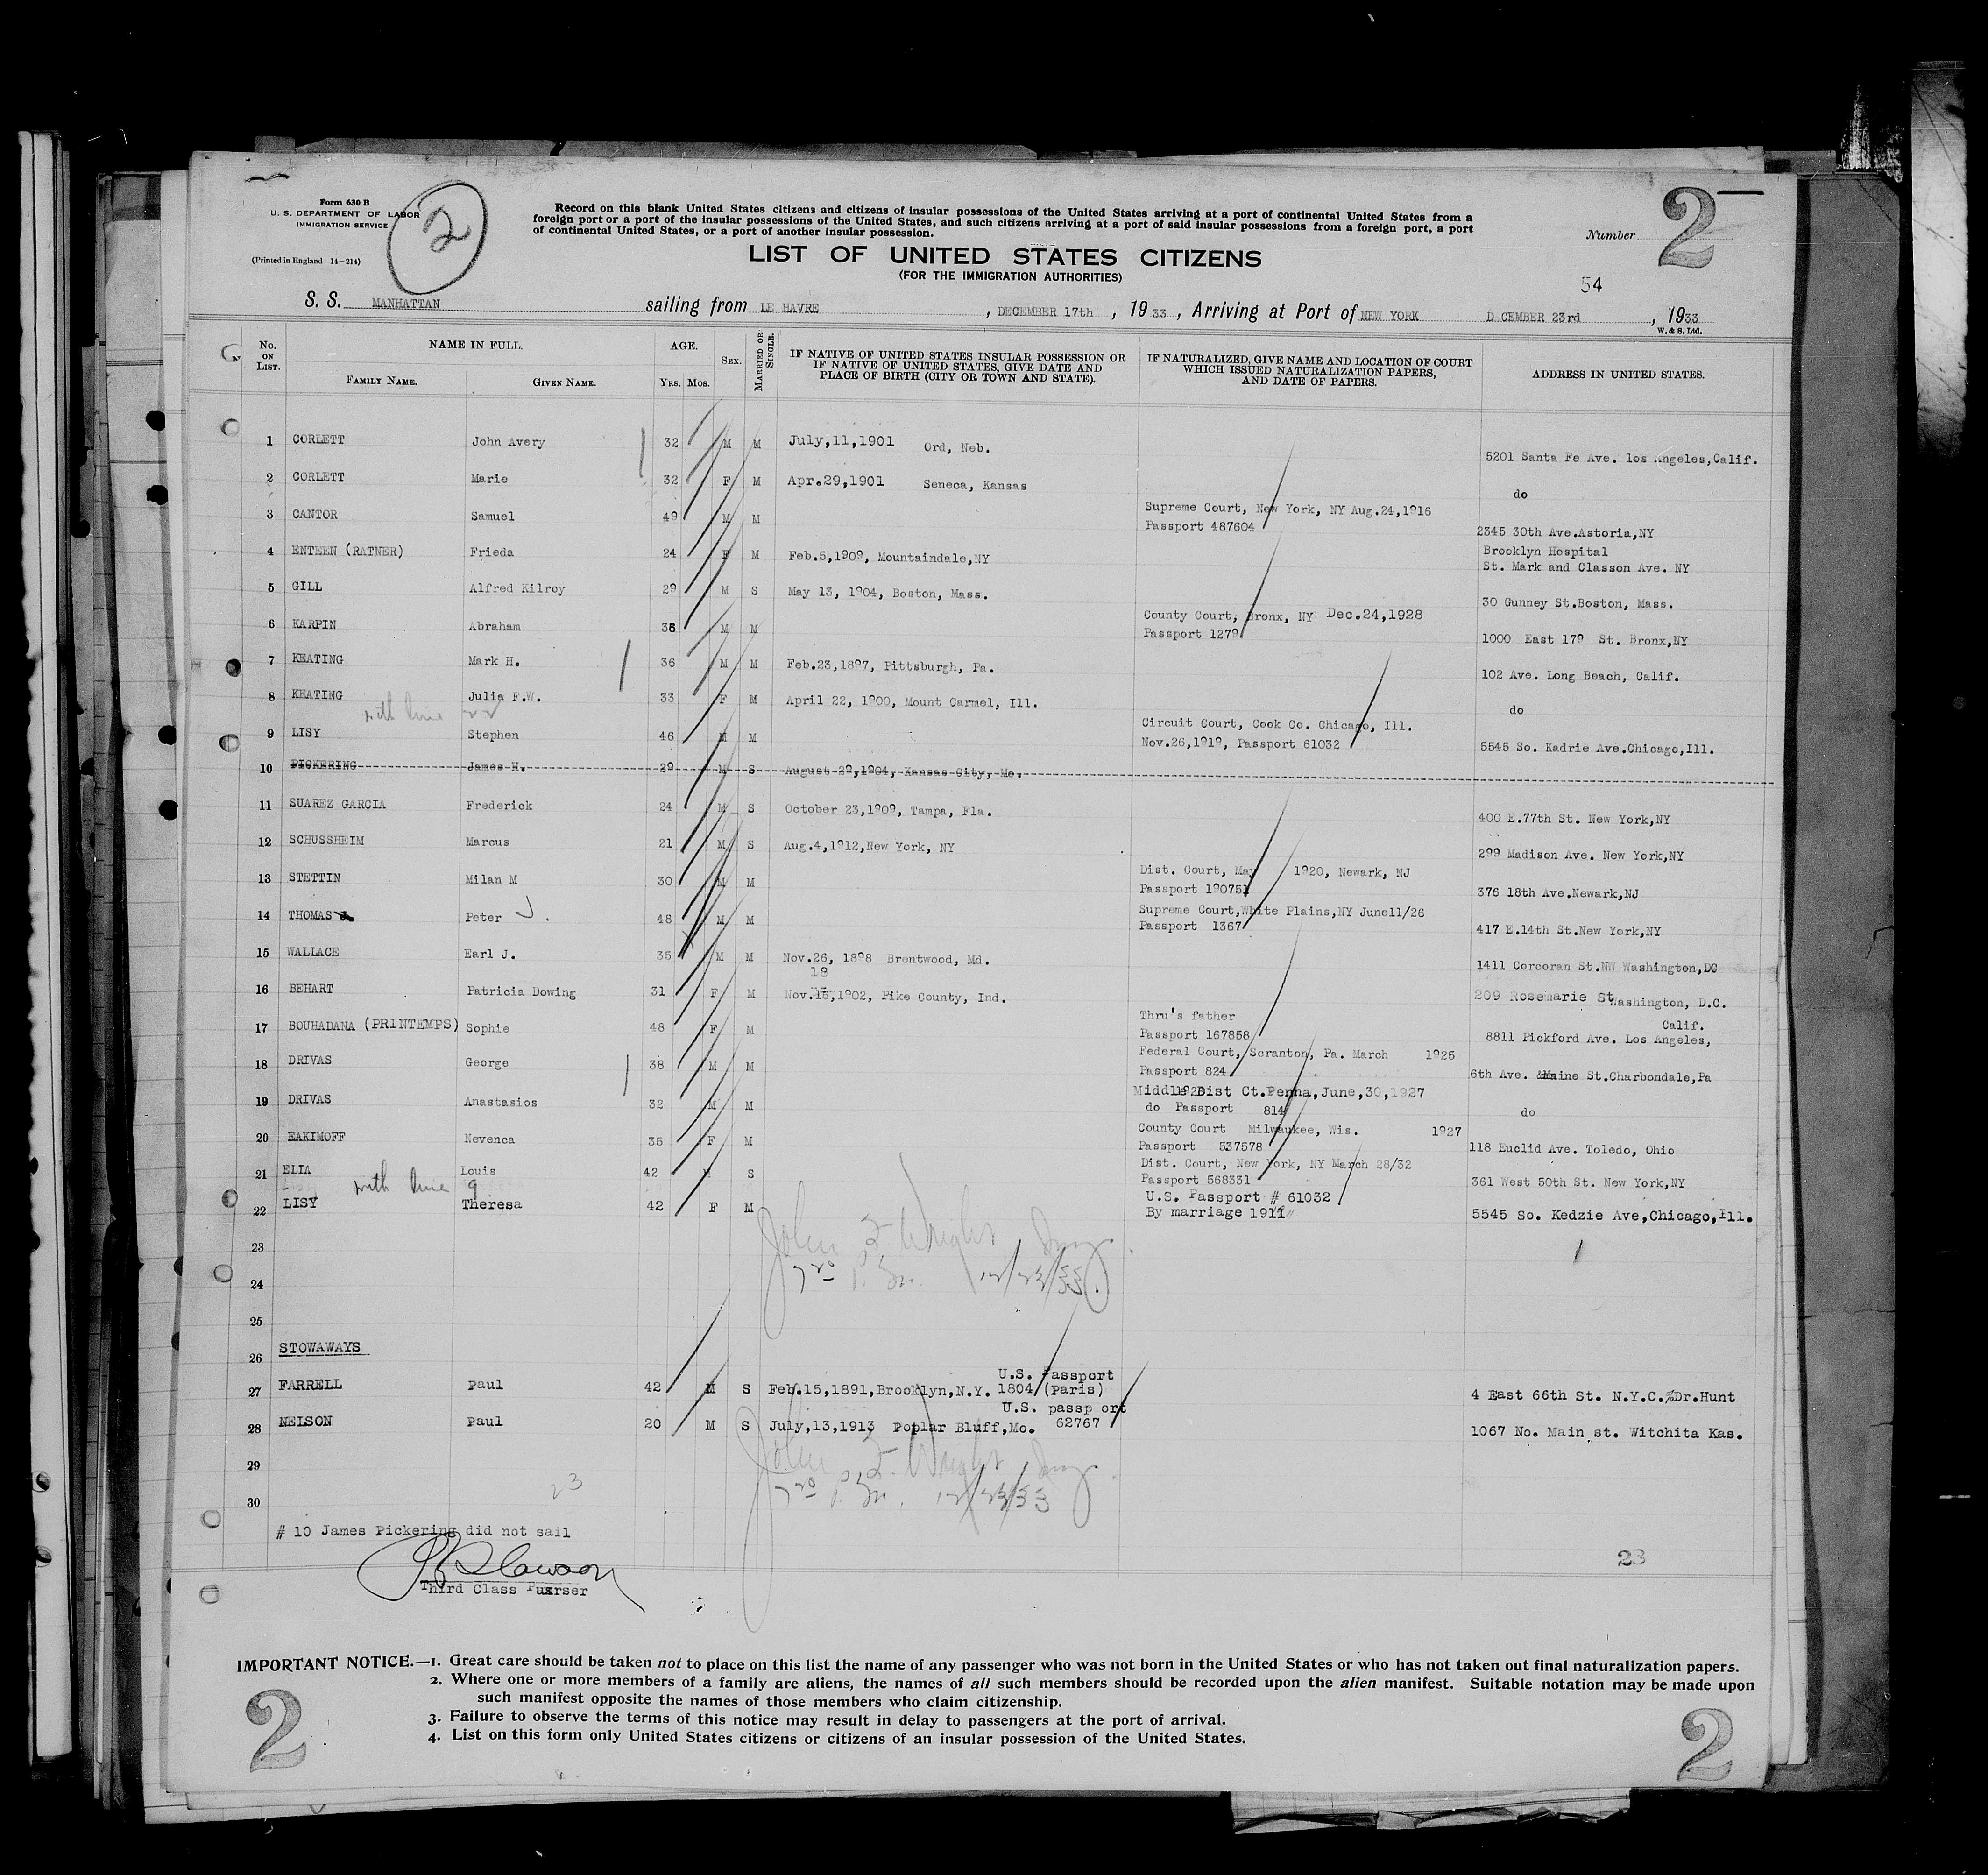 Form 630 B
U. S. DEPARTMENT OF LABOR
IMMIGRATION SERVICE
(Printed in England 14—214)
2
Record on this blank United States citizens and citizens of insular possessions of the United States arriving at a port of continental United States from a
foreign port or a port of the insular possessions of the United States, and such citizens arriving at a port of said insular possessions from a foreign port, a port
of continental United States, or a port of another insular possession.
LIST OF UNITED STATES CITIZENS
(FOR THE IMMIGRATION AUTHORITIES)
Number 2
54
S. S. MANHATTAN sailing from LE HAVRE, DECEMBER 17th, 1933, Arriving at Port of NEW YORK D CEMBER 23rd, 1933
W. & S. Ltd.
No. ON LIST. NAME IN FULL. FAMILY NAME. GIVEN NAME. AGE. YRS. MOS. SEX. MARRIED OR SINGLE. IF NATIVE OF UNITED STATES INSULAR POSSESSION OR IF NATIVE OF UNITED STATES, GIVE DATE AND PLACE OF BIRTH (CITY OR TOWN AND STATE). IF NATURALIZED, GIVE NAME AND LOCATION OF COURT WHICH ISSUED NATURALIZATION PAPERS, AND DATE OF PAPERS. ADDRESS IN UNITED STATES.
1 CORLETT John Avery 32 M M July,11,1901 Ord, Neb. 5201 Santa Fe Ave. los Angeles,Calif.
2 CORLETT Marie 32 F M Apr.29,1901 Seneca, Kansas do
3 CANTOR Samuel 49 M M Supreme Court, New York, NY Aug.24,1916
Passport 487604 2345 30th Ave.Astoria,NY
4 ENTEEN (RATNER) Frieda 24 F M Feb.5,1909, Mountaindale,NY Brooklyn Hospital
St. Mark and Classon Ave. NY
5 GILL Alfred Kilroy 29 M S May 13, 1904, Boston, Mass. 30 Gunney St.Boston, Mass.
6 KARPIN Abraham 36 M M County Court, Bronx, NY Dec.24,1928
Passport 1279 1000 East 179 St. Bronx,NY
7 KEATING Mark H. 36 M M Feb.23,1897, Pittsburgh, Pa. 102 Ave. Long Beach, Calif.
8 KEATING Julia F.W. 33 F M April 22, 1900, Mount Carmel, Ill. do
with line 22
9 LISY Stephen 46 M M Circuit Court, Cook Co. Chicago, Ill.
Nov.26,1919, Passport 61032 5545 So. Kadrie Ave.Chicago,Ill.
10 PICKERING James H. 29 M S August 29,1904, Kansas City, Mo.
11 SUAREZ GARCIA Frederick 24 M S October 23,1909, Tampa, Fla. 400 E.77th St. New York,NY
12 SCHUSSHEIM Marcus 21 M S Aug.4,1912,New York, NY 299 Madison Ave. New York,NY
13 STETTIN Milan M 30 M M Dist. Court, May 1920, Newark, NJ
Passport 190751 376 18th Ave.Newark,NJ
14 THOMAS J Peter J. 48 M M Supreme Court,White Plains,NY June11/26
Passport 1367 417 E.14th St.New York,NY
15 WALLACE Earl J. 35 M M Nov.26, 1898 Brentwood, Md. 1411 Corcoran St.NW Washington,DC
18
16 BEHART Patricia Dowing 31 F M Nov.15,1902, Pike County, Ind. 209 Rosemarie St Washington, D.C.
17 BOUHADANA (PRINTEMPS) Sophie 48 F M Thru's father
Passport 167858 8811 Pickford Ave. Los Angeles, Calif.
18 DRIVAS George 38 M M Federal Court, Scranton, Pa. March 1925
Passport 824 6th Ave. &Maine St.Charbondale,Pa
19 DRIVAS Anastasios 32 M M Middle Dist Ct.Penna,June,30,1927
do Passport 814 do
20 EAKIMOFF Nevenca 35 F M County Court Milwaukee, Wis. 1927
Passport 537578 118 Euclid Ave. Toledo, Ohio
21 ELIA Louis 42 M S Dist. Court, New York, NY March 28/32
Passport 568331 361 West 50th St. New York,NY
with line 9
22 LISY Theresa 42 F M U.S. Passport # 61032
By marriage 1911 5545 So. Kedzie Ave,Chicago,Ill.
23
24
John F Wright Insp
12/23/33.
25
26 STOWAWAYS
27 FARRELL Paul 42 M S Feb.15,1891,Brooklyn,N.Y. U.S. Passport 1804 (Paris) 4 East 66th St. N.Y.C.%Dr.Hunt
28 NELSON Paul 20 M S July,13,1913 Poplar Bluff,Mo. U.S. passp ort 62767 1067 No. Main st. Witchita Kas.
29
John F. Wright Insp
12/23/33
30
23
# 10 James Pickering did not sail
Third Class Purser
23
IMPORTANT NOTICE.—1. Great care should be taken not to place on this list the name of any passenger who was not born in the United States or who has not taken out final naturalization papers.
2. Where one or more members of a family are aliens, the names of all such members should be recorded upon the alien manifest. Suitable notation may be made upon
such manifest opposite the names of those members who claim citizenship.
3. Failure to observe the terms of this notice may result in delay to passengers at the port of arrival.
4. List on this form only United States citizens or citizens of an insular possession of the United States.
2
2